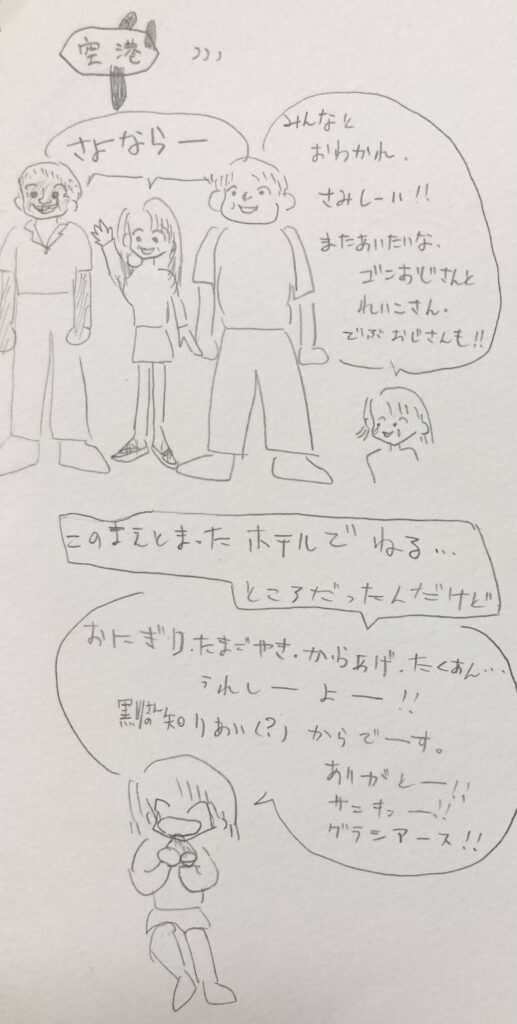 空港
さよならー
みんなと
おわかれ、
さみしーい!!
またあいたいな、
ゴンおじさんと
れいこさん・
でぶおじさんも!!
このまえとまったホテルでねる…
ところだったんだけど
おにぎり、たまごやき・からあげ、たくあん…
うれしーよー!!
さんの知りあい(?)からでーす。
ありがとー!!
サンキュー!!
グラシアース!!